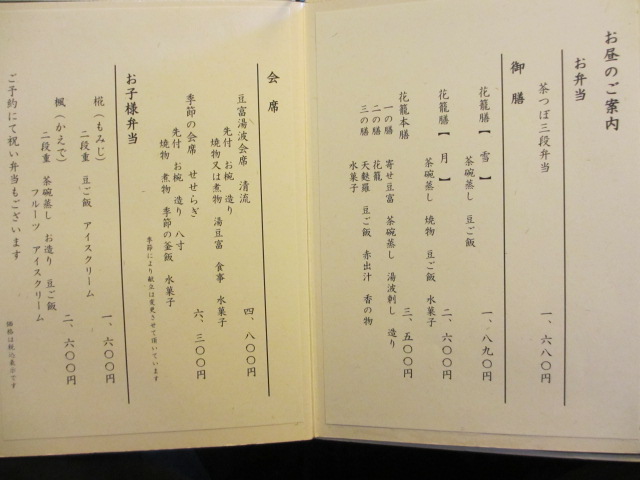 お昼のご案内
お弁当
茶つぼ三段弁当 一、六八〇円
御膳
花籠膳【雪】 一、八九〇円
茶碗蒸し 豆ご飯
花籠膳【月】 二、六〇〇円
茶碗蒸し 焼物 豆ご飯 水菓子
花籠本膳 三、五〇〇円
一の膳 寄せ豆富 茶碗蒸し 湯波刺し 造り
二の膳 花籠 豆ご飯 赤出汁 香の物
三の膳 天麩羅
水菓子
会席
豆富湯波会席 清流 四、八〇〇円
先付 お椀 造り
焼物又は煮物 湯豆富 食事 水菓子
季節の会席 せせらぎ 六、三〇〇円
先付 お椀 造り 八寸
焼物 煮物 季節の釜飯 水菓子
季節により献立は変更させて頂いています
お子様弁当
椛（もみじ） 一、六〇〇円
二段重 豆ご飯 アイスクリーム
楓（かえで） 二、六〇〇円
二段重 茶碗蒸し お造り 豆ご飯
フルーツ アイスクリーム
ご予約にて祝い弁当もございます
価格は税込表示です